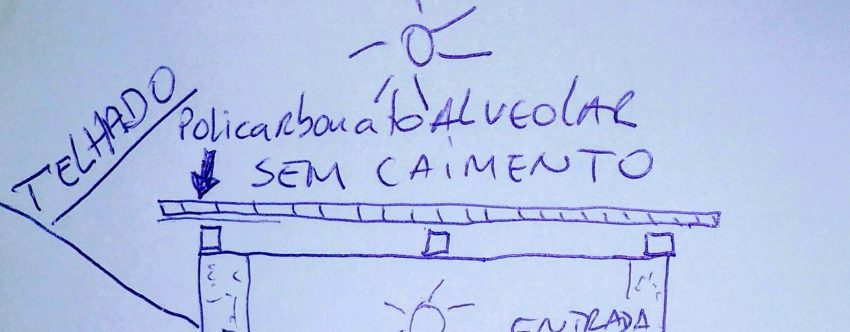 TELHADO
Policarbonato ALVEOLAR
SEM CAIMENTO
ENTRADA